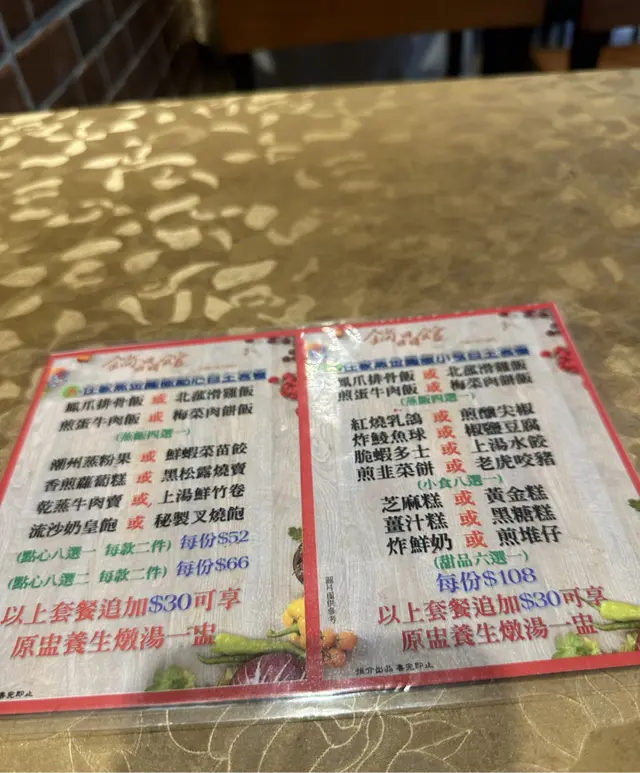 鳳爪排骨飯 或 北菰滑雞飯
煎蛋牛肉飯 或 梅菜肉餅飯
(蒸飯四選一)
潮州蒸粉果 或 鮮蝦菜苗餃
香煎蘿蔔糕 或 黑松露燒賣
乾蒸牛肉賣 或 上湯鮮竹卷
流沙奶皇飽 或 秘製叉燒飽
(點心八選一 每款二件) 每份$52
(點心八選二 每款二件) 每份$66
以上套餐追加$30可享
原盅養生燉湯一盅
售完即止
鳳爪排骨飯 或 北菰滑雞飯
煎蛋牛肉飯 或 梅菜肉餅飯
(蒸飯四選一)
紅燒乳鴿 或 煎釀尖椒
炸鯪魚球 或 椒鹽豆腐
脆蝦多士 或 上湯水餃
煎韭菜餅 或 老虎咬豬
(小食八選一)
芝麻糕 或 黃金糕
薑汁糕 或 黑糖糕
炸鮮奶 或 煎堆仔
(甜品六選一)
每份$108
以上套餐追加$30可享
原盅養生燉湯一盅
圖片僅供參考
推介出品 售完即止